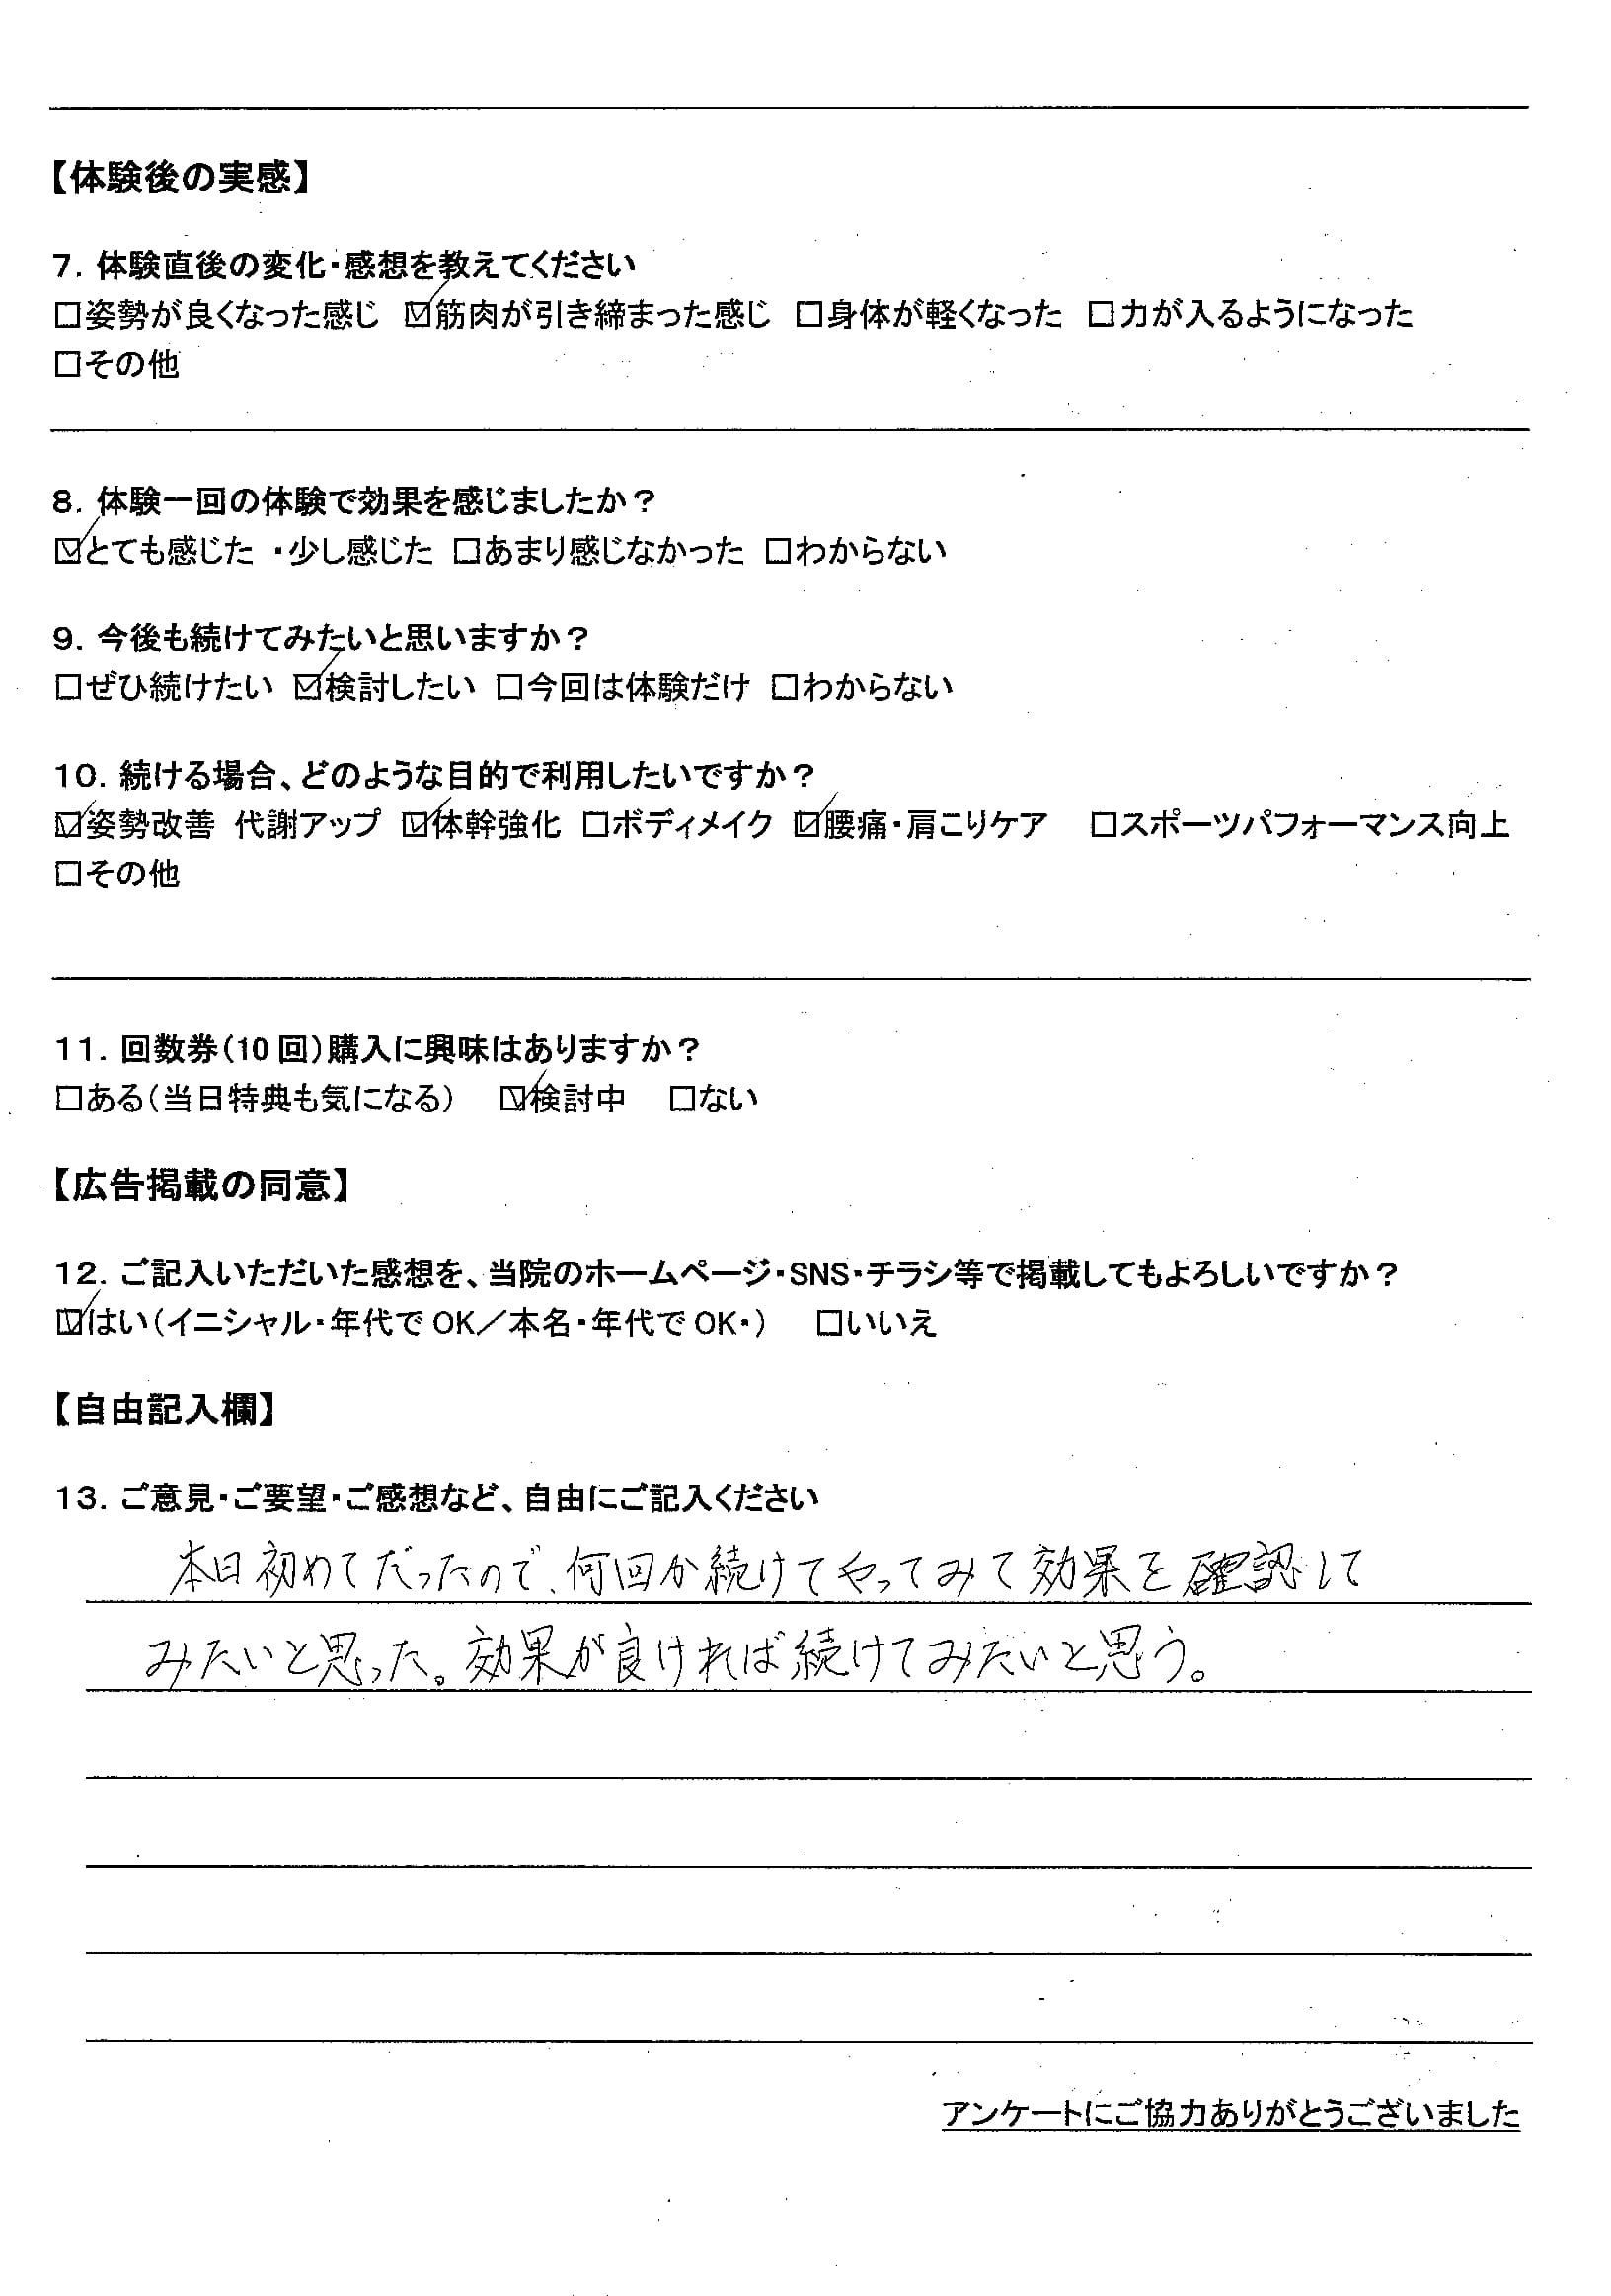 【体験後の実感】
7. 体験直後の変化・感想を教えてください
□姿勢が良くなった感じ ☑筋肉が引き締まった感じ □身体が軽くなった □力が入るようになった
□その他
8. 体験一回の体験で効果を感じましたか？
☑とても感じた ・少し感じた □あまり感じなかった □わからない
9. 今後も続けてみたいと思いますか？
□ぜひ続けたい ☑検討したい □今回は体験だけ □わからない
10. 続ける場合、どのような目的で利用したいですか？
☑姿勢改善 代謝アップ ☑体幹強化 □ボディメイク ☑腰痛・肩こりケア □スポーツパフォーマンス向上
□その他
11. 回数券（10 回）購入に興味はありますか？
□ある（当日特典も気になる） ☑検討中 □ない
【広告掲載の同意】
12. ご記入いただいた感想を、当院のホームページ・SNS・チラシ等で掲載してもよろしいですか？
☑はい（イニシャル・年代で OK／本名・年代で OK・） □いいえ
【自由記入欄】
13. ご意見・ご要望・ご感想など、自由にご記入ください
本日初めてだったので、何回か続けてやってみて効果を確認して
みたいと思った。効果が良ければ続けてみたいと思う。
アンケートにご協力ありがとうございました